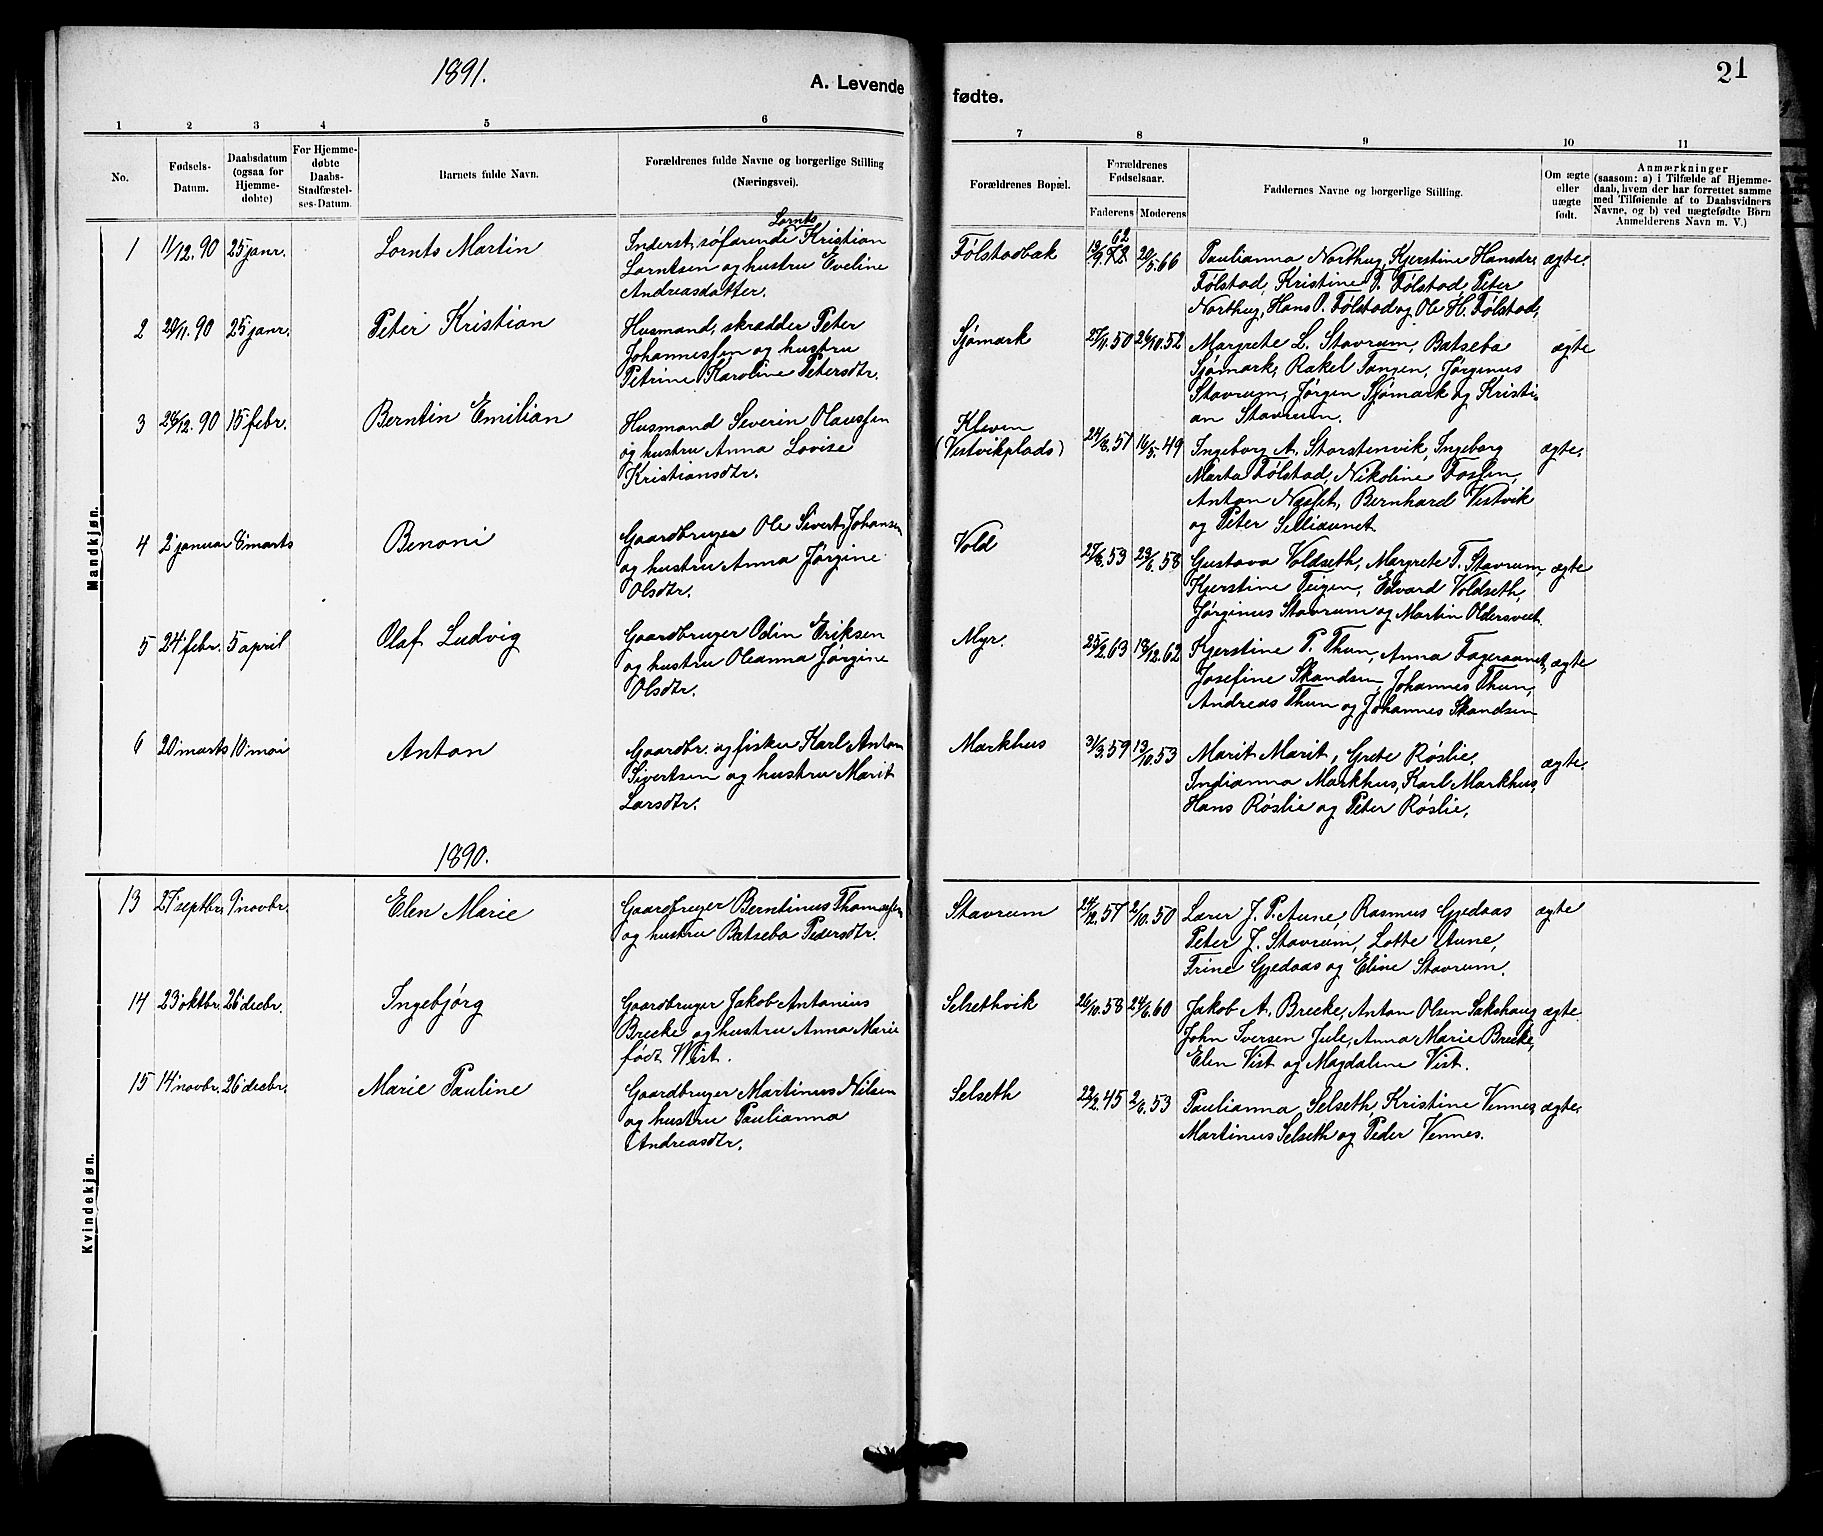 1891.
A. Levende
fødte.
21
1 2 3 4 5 6 7 8 9 10 11
No.
Fødsels-
Datum.
Daabsdatum
(ogsaa for
Hjemme-
døbte)
For Hjemme-
døbte
Daabs-
Stadfæstel-
ses-Datum.
Barnets fulde Navn.
Forældrenes fulde Navne og borgerlige Stilling
(Næringsvei).
Forældrenes Bopæl.
Forældrenes
Fødselsaar.
Faderens Moderens
Faddernes Navne og borgerlige Stilling.
Om ægte
eller
uægte
født.
Anmærkninger
(saasom: a) i Tilfælde af Hjemme-
daab, hvem der har forrettet samme
med Tilføiende af to Daabsvidners
Navne, og b) ved uægtefødte Børn
Anmelderens Navn m. V.)
Mandkjøn.
1 11/12.90 25 janr. Lornts Martin
Lornts
Inderst, søfarende Kristian
Lorntsen og hustru Eveline
Andreasdatter.
Følstadbak
62
20/5.66
Paulianna Northug, Kjerstine Hansdr.
Følstad, Kristine P. Følstad, Peter
Northug, Hans P. Følstad og Ole H. Følstad,
ægte.
2 29/11.90 25 janr. Peter Kristian
Husmand, skrædder Peter
Johannessen og hustru
Petrine Karoline Petersdtr.
Sjømark
27/11.50 26/10.52
Margrete L. Stavrum, Batseba
Sjømark, Rakel Tangen, Jørginus
Stavrum, Jørgen Sjømark og Kristi-
an Stavrum.
ægte
3 28/12.90 15 febr. Berntin Emilian
Husmand Severin Olaussen
og hustru Anna Lovise
Kristiansdtr.
Kleven
(Vestvikplads)
24/8.57 16/5.49
Ingeborg A. Storstenvik, Ingeborg
Marta Følstad, Nikoline Fossen,
Anton Næsset, Bernhard Vestvik
og Peter Selliaunet
ægte.
4 2 januar 8 marts Benoni
Gaardbruger Ole Sivert Johansen
og hustru Anna Jørgine
Olsdtr.
Vold
27/8.53 23/6.58
Gustava Voldseth, Margrete T. Stavrum,
Kjerstine Teigen, Edvard Voldseth,
Jørginus Stavrum og Martin Oldersveet.
ægte
5 24 febr. 5 april Olaf Ludvig
Gaardbruger Odin Eriksen
og hustru Oleanna Jørgine
Olsdtr.
Myr.
25/2.63 18/12.62
Kjerstine P. Thun, Anna Fageraunet,
Josefine Skandsen, Johannes Thun,
Andreas Thun og Johannes Skandsen
ægte
6 20 marts 10 mai Anton
Gaardbr. og fisker Karl Anton
Sivertsen og hustru Marit
Larsdtr.
Markhus
31/3.59 13/10.53
Marit Marit, Grete Røslie,
Indianna Markhus, Karl Markhus,
Hans Røslie og Peter Røslie,
ægte.
1890.
Kvindekjøn.
13 27 septbr. 9 novbr. Elen Marie
Gaardbruger Berntinus Thomassen
og hustru Batseba Pedersdtr.
Stavrum
24/12.57 2/10.50
Lærer J. P. Aune, Rasmus Gjedaas
Peter J. Stavrum, Lotte Aune,
Trine Gjedaas og Eline Stavrum.
ægte
14 23 oktbr. 26 decbr. Ingebjørg
Gaardbruger Jakob Antonius
Brecke og hustru Anna Marie
født Wist.
Selsethvik
26/10.58 24/6.60
Jakob A. Brecke, Anton Olsen Sakshaug
John Iversen Jule, Anna Marie Brecke,
Elen Vist og Magdalene Vist.
ægte.
15 14 novbr. 26 decbr. Marie Pauline
Gaardbruger Martinus Nilsen
og hustru Paulianna
Andreasdtr.
Selseth
22/2.45 2/6.53
Paulianna Selseth, Kristine Vennes,
Martinus Selseth og Peder Vennes.
ægte.